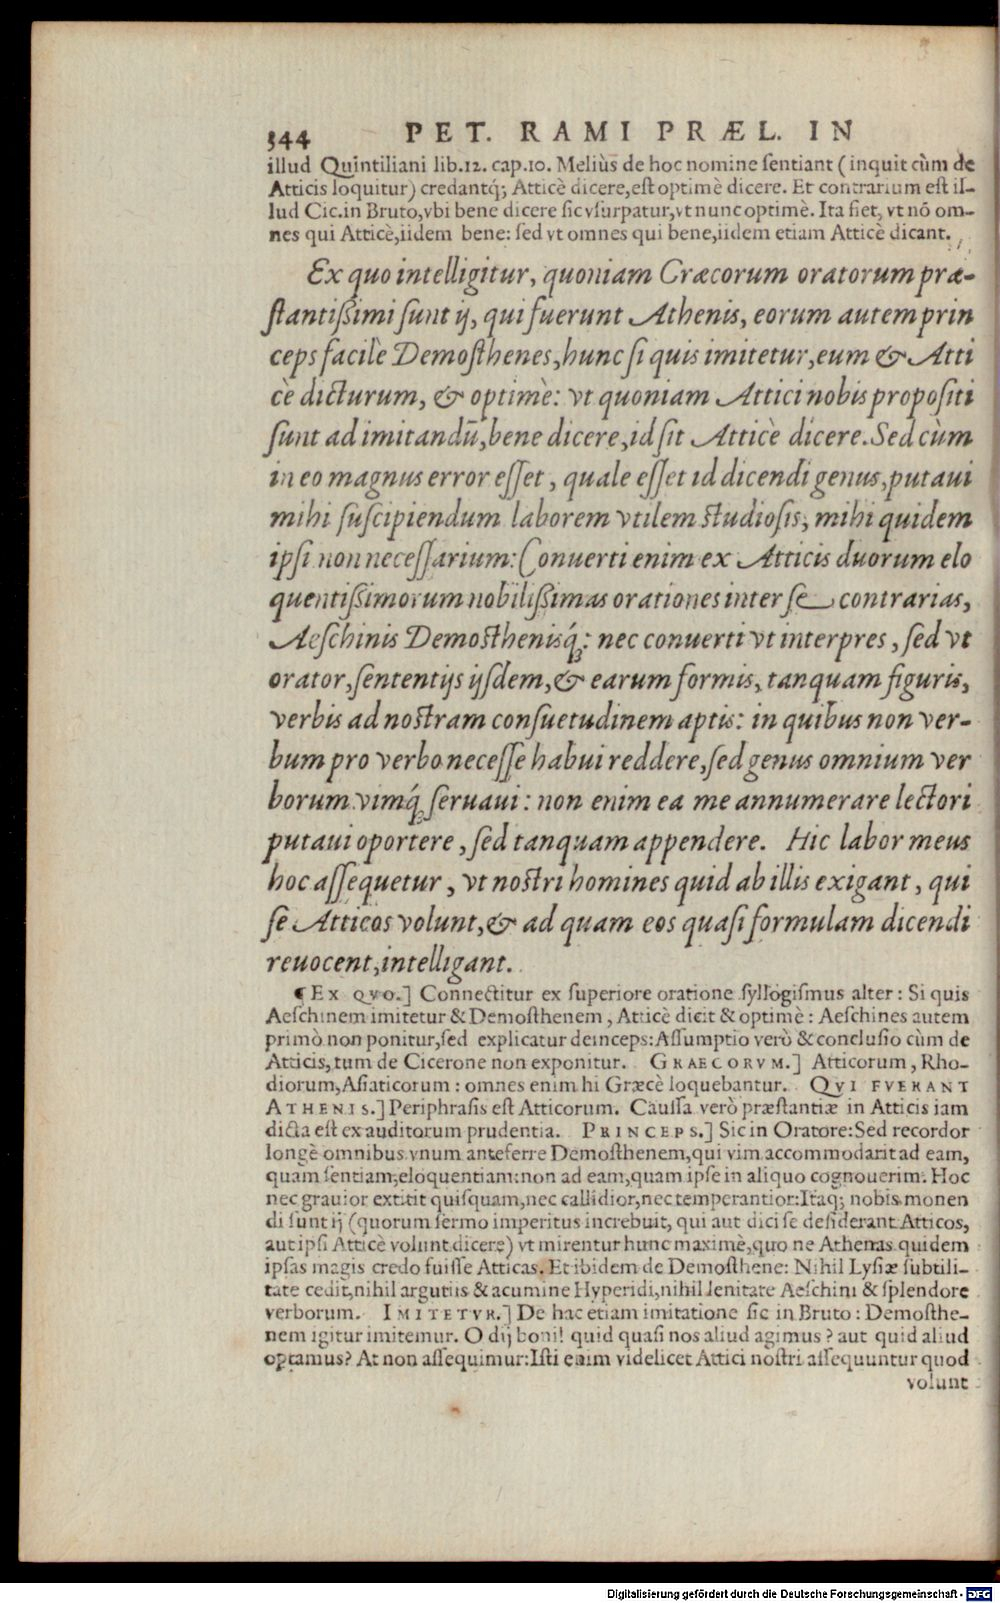 344 PET. RAMI PRÆL. IN
illud Quintiliani lib.12. cap.10. Meliùs de hoc nomine ſentiant (inquit cùm de
Atticis loquitur) credantq́; Atticè dicere,eſt optimè dicere. Et contrarium eſt il-
lud Cic.in Bruto,vbi bene dicere ſic vſurpatur,vt nunc optimè. Ita fiet, vt nō om-
nes qui Atticè,iidem bene: ſed vt omnes qui bene,iidem etiam Atticè dicant.
Ex quo intelligitur, quoniam Græcorum oratorum præ-
ſtantißimi ſunt ij, qui fuerunt Athenis, eorum autem prin
ceps facilè Demoſthenes,hunc ſi quis imitetur,eum & Atti
cè dicturum, & optimè: vt quoniam Attici nobis propoſiti
ſunt ad imitandū,bene dicere,id ſit Atticè dicere.Sed cùm
in eo magnus error eſſet, quale eſſet id dicendi genus,putaui
mihi ſuſcipiendum laborem vtilem ſtudioſis, mihi quidem
ipſi non neceſſarium:Conuerti enim ex Atticis duorum elo
quentißimorum nobilißimas orationes inter ſe contrarias,
Aeſchinis Demoſthenisq́;: nec conuerti vt interpres, ſed vt
orator,ſententijs ijſdem,& earum formis, tanquam figuris,
verbis ad noſtram conſuetudinem aptis: in quibus non ver-
bum pro verbo neceſſe habui reddere,ſed genus omnium ver
borum vimq́; ſeruaui: non enim ea me annumerare lectori
putaui oportere, ſed tanquam appendere. Hic labor meus
hoc aſſequetur, vt noſtri homines quid ab illis exigant, qui
ſe Atticos volunt,& ad quam eos quaſi formulam dicendi
reuocent,intelligant.
¶ EX QVO.] Connectitur ex ſuperiore oratione ſyllogiſmus alter: Si quis
Aeſchinem imitetur & Demoſthenem, Atticè dicit & optimè: Aeſchines autem
primò non ponitur,ſed explicatur deinceps:Aſſumptio verò & concluſio cùm de
Atticis, tum de Cicerone non exponitur. GRAECORVM.] Atticorum, Rho-
diorum,Aſiaticorum: omnes enim hi Græcè loquebantur. QVI FVERANT
ATHENIS.] Periphraſis eſt Atticorum. Cauſſa verò præſtantiæ in Atticis iam
dicta eſt ex auditorum prudentia. PRINCEPS.] Sic in Oratore:Sed recordor
longè omnibus vnum anteferre Demoſthenem,qui vim accommodarit ad eam,
quam ſentiam,eloquentiam:non ad eam,quam ipſe in aliquo cognouerim. Hoc
nec grauior extitit quiſquam,nec callidior,nec temperantior:Itaq; nobis monen
di ſunt ij (quorum ſermo imperitus increbuit, qui aut dici ſe deſiderant Atticos,
aut ipſi Atticè volunt dicere) vt mirentur hunc maximè,quo ne Athenas quidem
ipſas magis credo fuiſſe Atticas. Et ibidem de Demoſthene: Nihil Lyſiæ ſubtili-
tate cedit,nihil argutiis & acumine Hyperidi,nihil lenitate Aeſchini & ſplendore
verborum. IMITETVR.] De hac etiam imitatione ſic in Bruto: Demoſthe-
nem igitur imitemur. O dij boni! quid quaſi nos aliud agimus? aut quid aliud
optamus? At non aſſequimur:Iſti enim videlicet Attici noſtri aſſequuntur quod
volunt
Digitalisierung gefördert durch die Deutsche Forschungsgemeinschaft - DFG